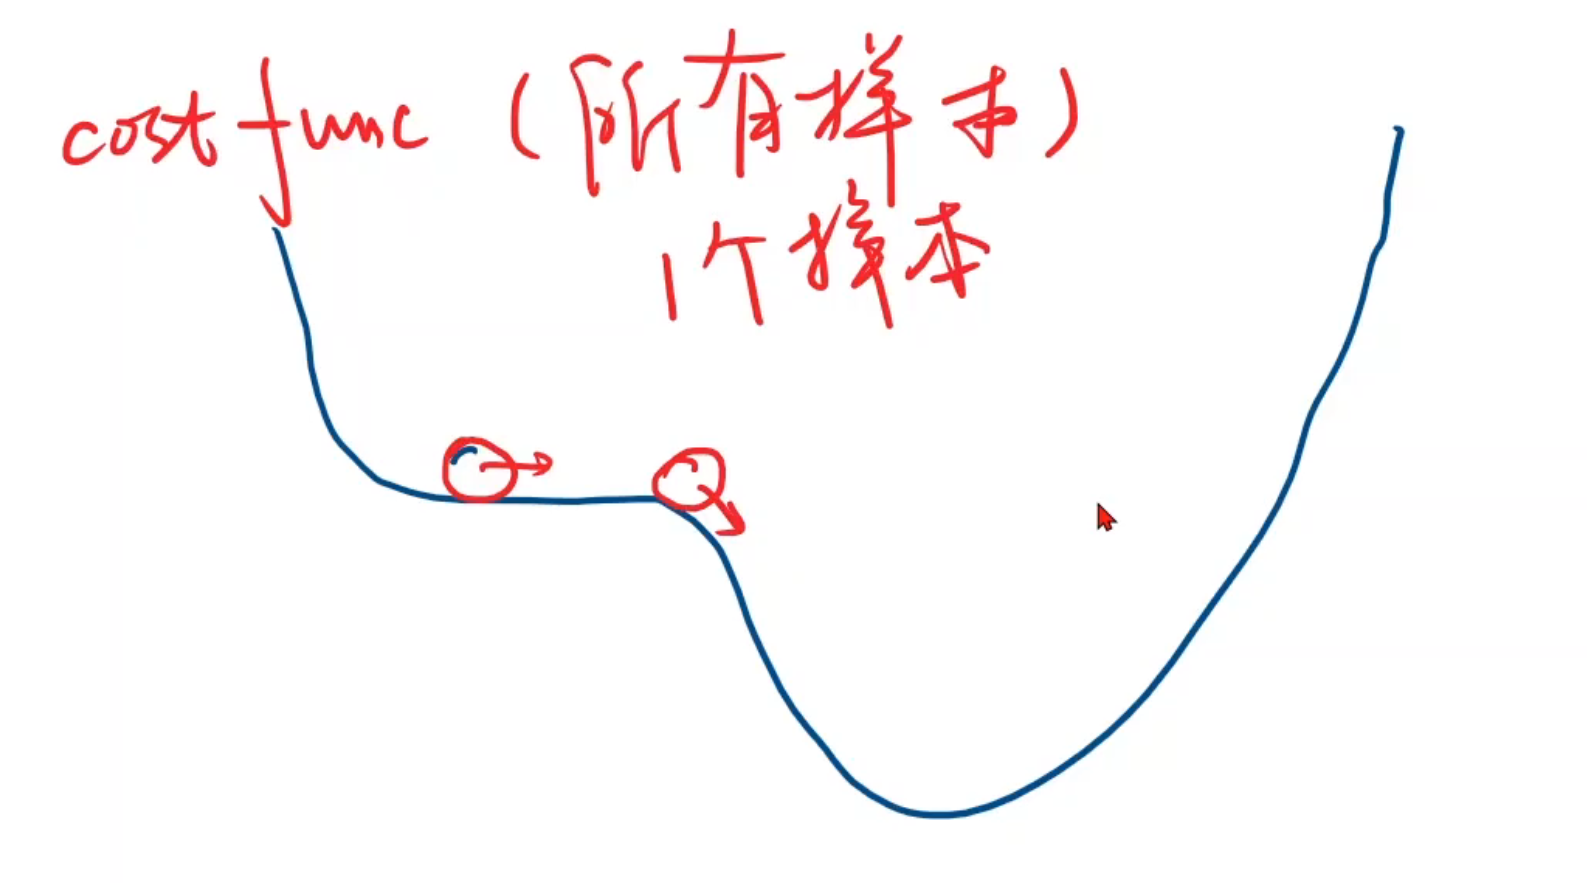 cost func (所有样本)
1个样本